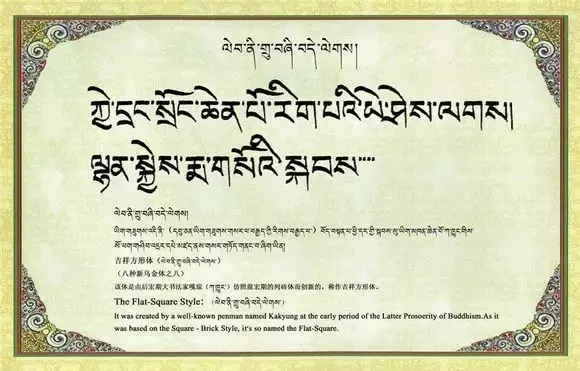 ལེབ་ནི་གྲུ་བཞི་བདེ་ལེགས།
ཀྱེ་དྲང་སྲོང་ཆེན་པོ་རིག་པའི་ཡེ་ཤེས་ལགས།
ལྷན་སྐྱེས་རྨ་གསོའི་སྐབས་
ལེབ་ནི་གྲུ་བཞི་བདེ་ལེགས།
ཡིག་གཟུགས་འདི་ནི་ (དབུ་མན་ཡིག་གཟུགས་གསར་པ་བརྒྱད་ཀྱི་རིགས་བརྒྱད་པ་) བོད་བསྟན་པ་ཕྱི་དར་གྱི་སྐབས་སུ་ཡིག་མཁན་ཆེན་པོ་ཀ་ཁྱུང་གིས་
སོ་ཕག་གཤིབ་འདྲར་དཔེ་མཛད་ནས་གསར་གཏོད་གནང་བ་ཞིག་ཡིན།
吉祥方形体 (ལེབ་ནི་གྲུ་བཞི་བདེ་ལེགས་)
(八种新乌金体之八)
该体是由后宏期大书法家嘎琼 (ཀ་ཁྱུང་) 仿照前宏期的列砖体而创新的，称作吉祥方形体。
The Flat-Square Style: (ལེབ་ནི་གྲུ་བཞི་བདེ་ལེགས་)
It was created by a well-known penman named Kakyung at the early period of the Latter Prosoerity of Buddhism.As it
was based on the Square - Brick Style, it's so named the Flat-Square.